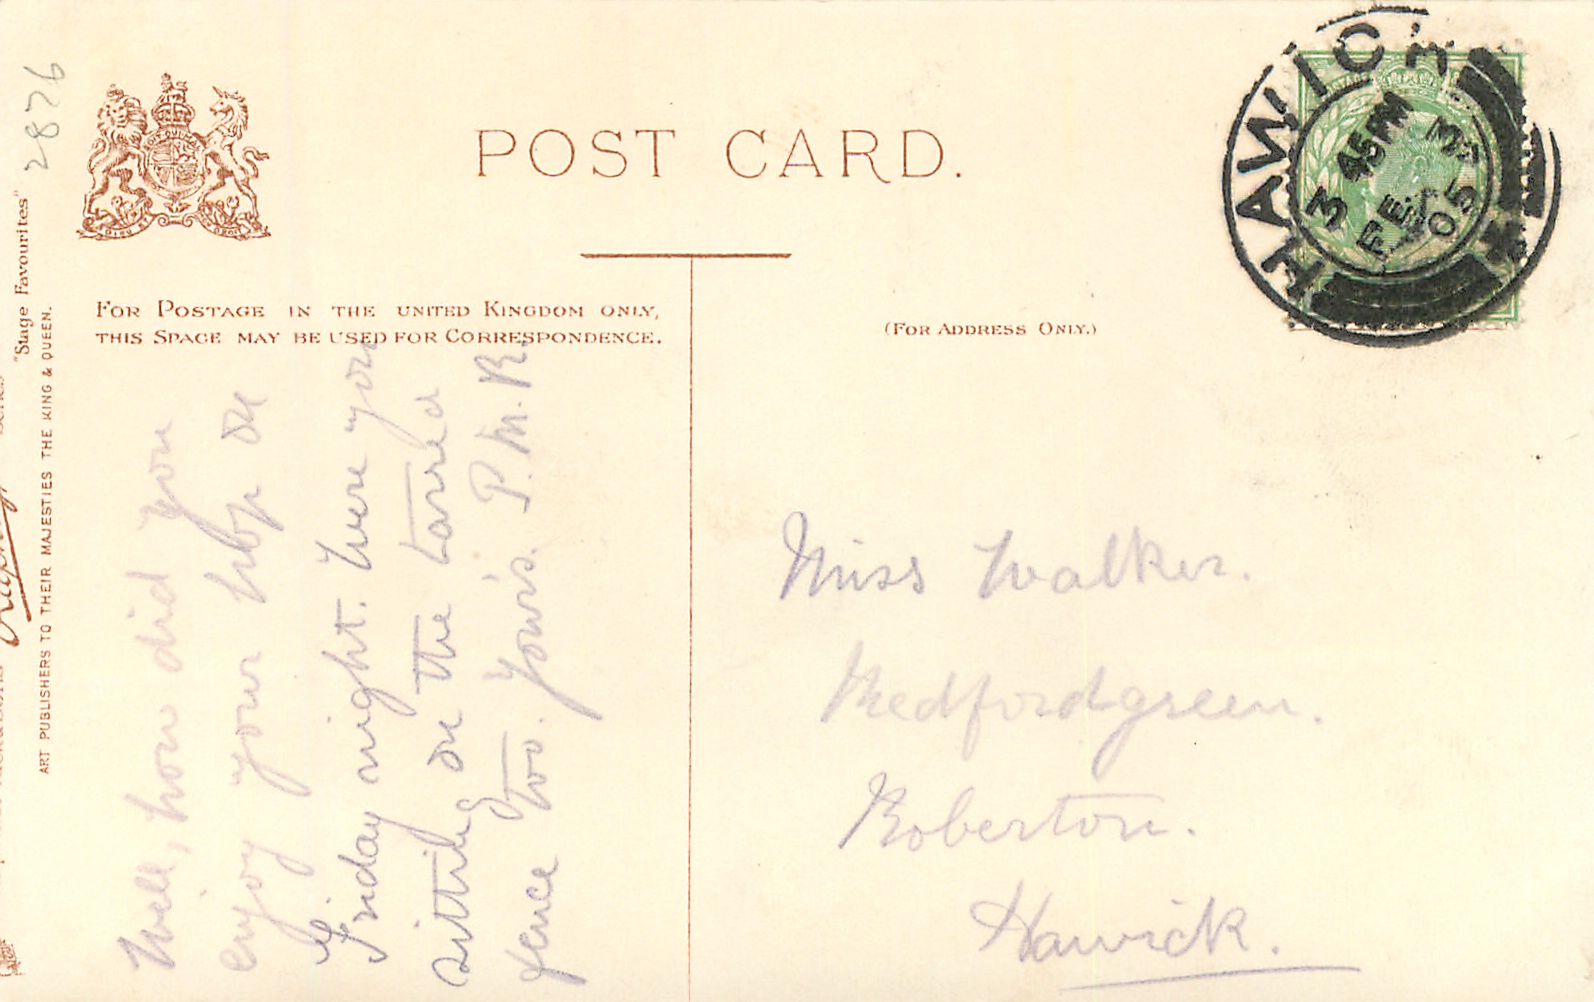 2876
POST CARD.
FOR POSTAGE IN THE UNITED KINGDOM ONLY,
THIS SPACE MAY BE USED FOR CORRESPONDENCE.
(FOR ADDRESS ONLY.)
HAWICK
3 45PM
FE 3
05
"Stage Favourites"
ART PUBLISHERS TO THEIR MAJESTIES THE KING & QUEEN.
Well, how did you
enjoy your hop on
Friday night. Were you
sitting on the tarred
fence too. Yours. P.M.R.
Miss Walker.
Roberton.
Hawick.